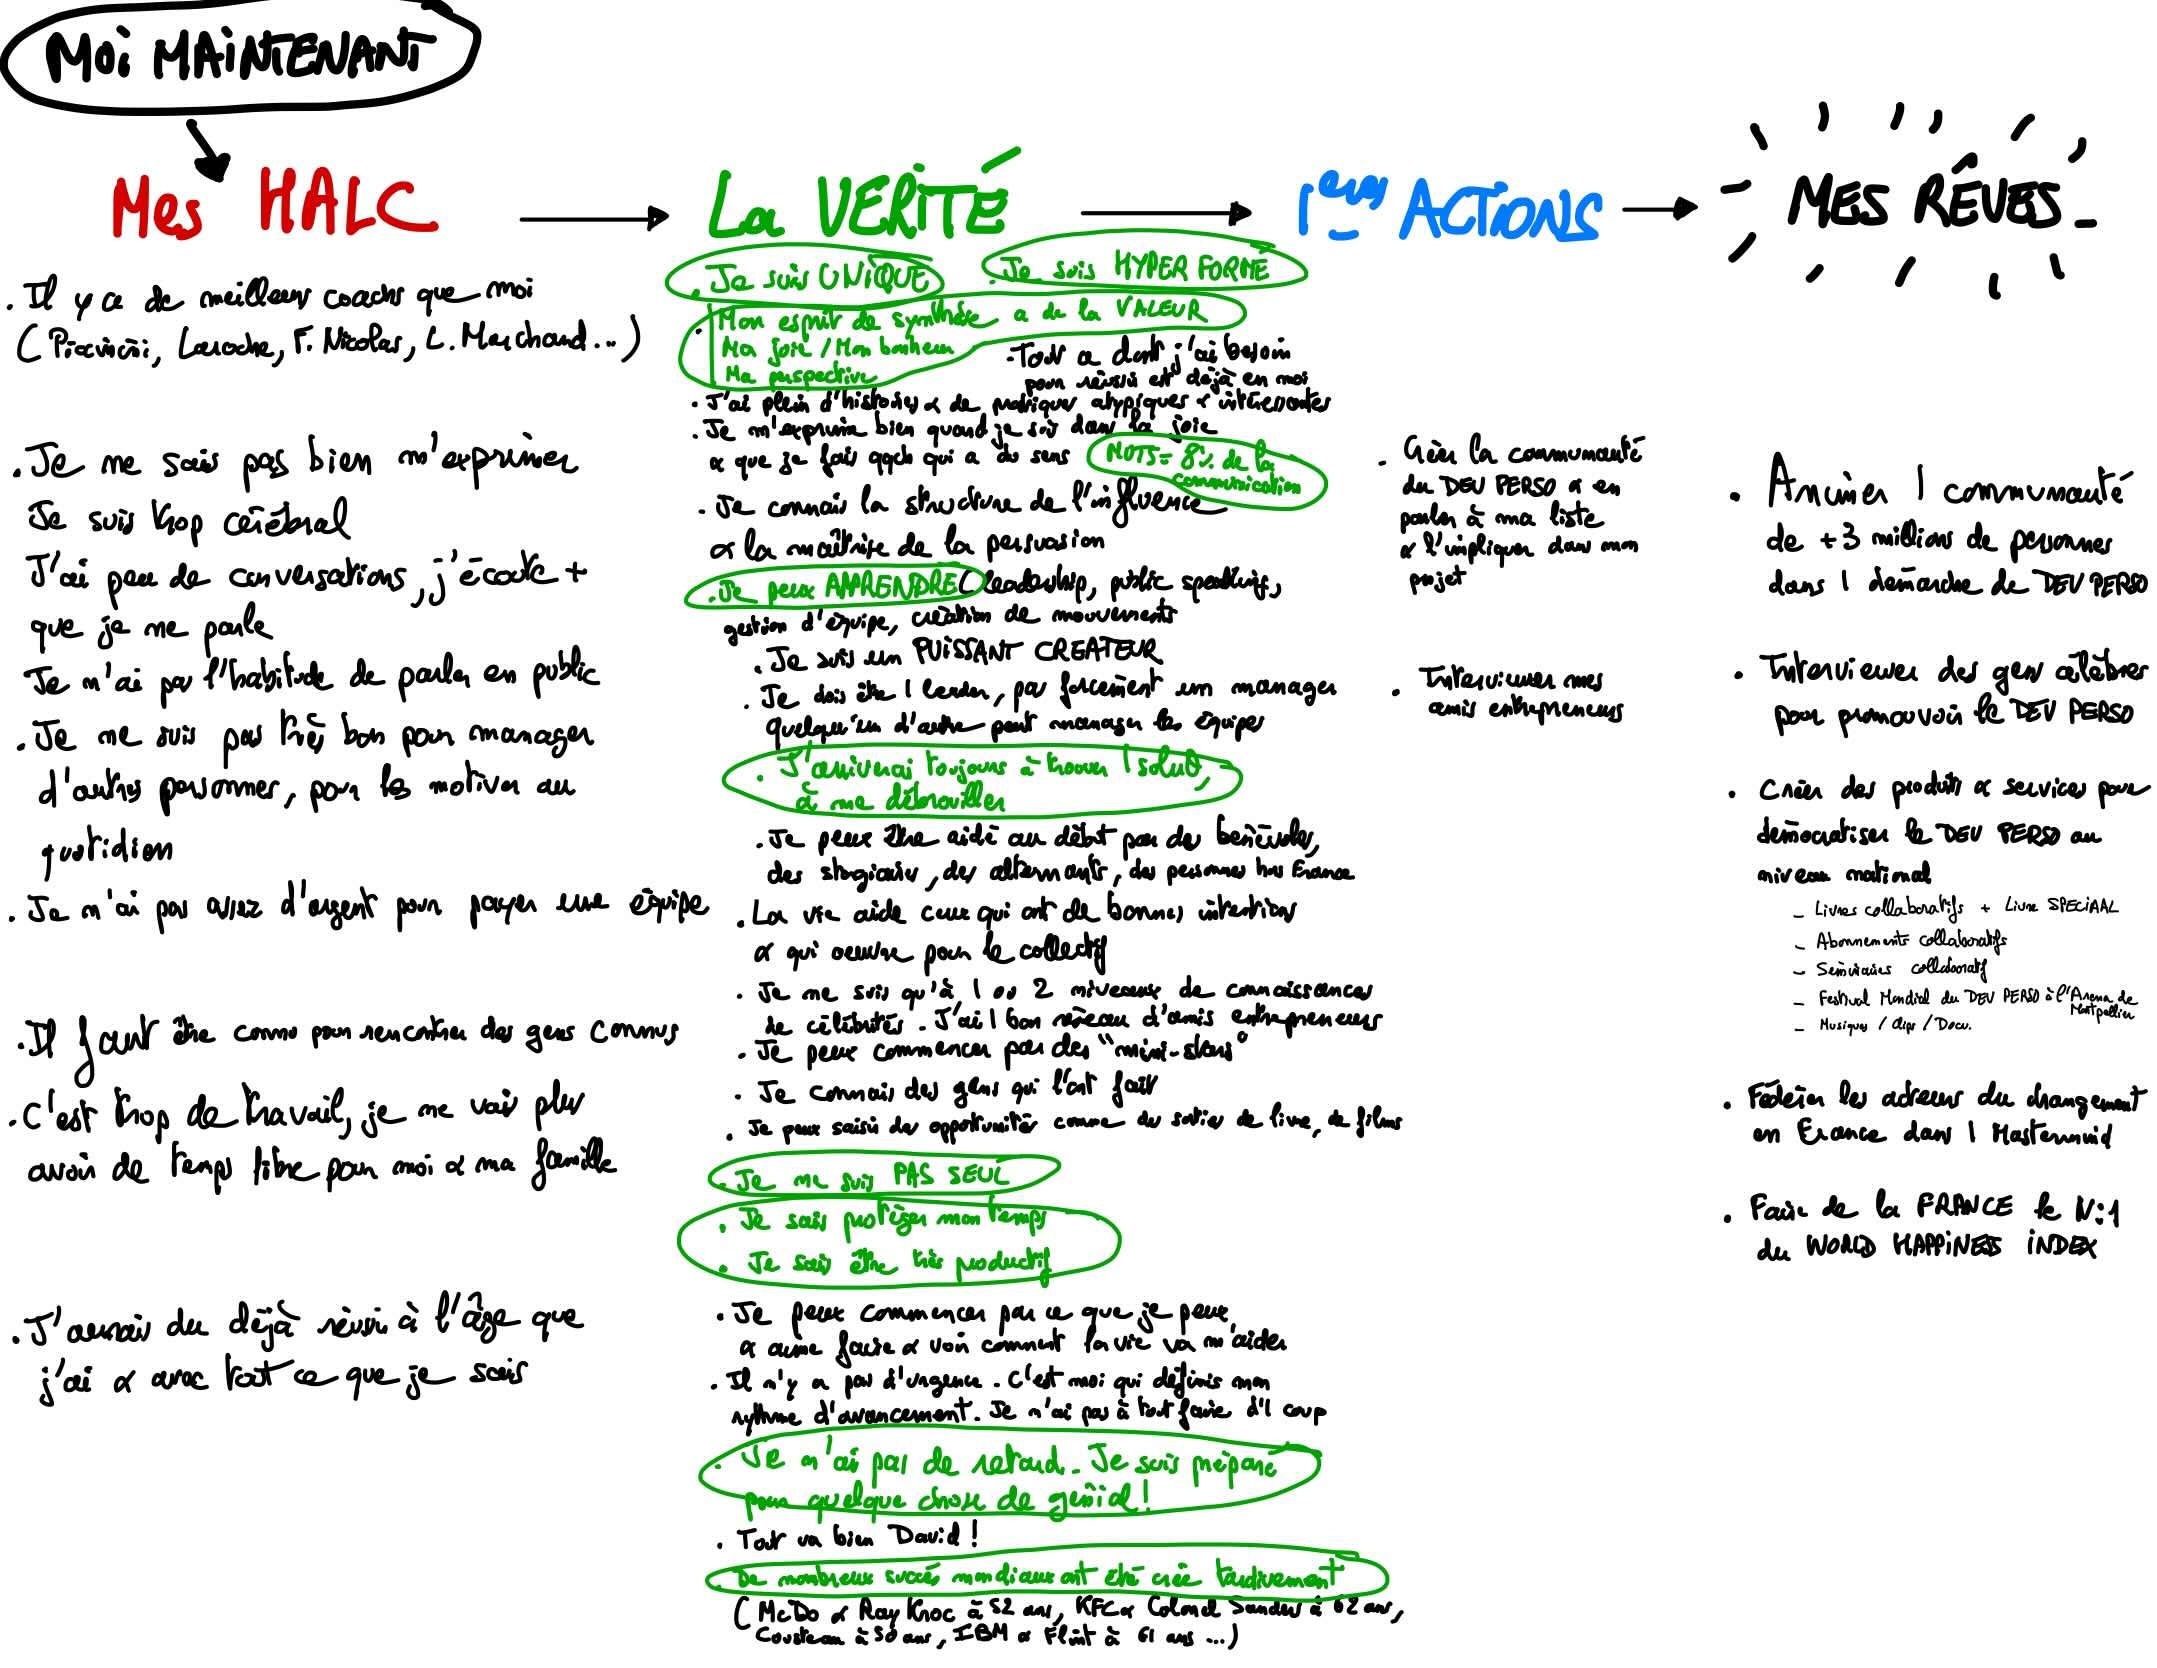 MOI MAINTENANT
Mes HALC
La VERITÉ
1ères ACTIONS
MES RÊVES
. Il y a de meilleurs coachs que moi
( Piacincini, Laroche, F. Nicolas, L. Marchand...)
. Je ne sais pas bien m'exprimer
Je suis trop cérébral
J'ai peu de conversations, j'écoute +
que je ne parle
Je n'ai pas l'habitude de parler en public
. Je ne suis pas très bon pour manager
d'autres personnes, pour les motiver au
quotidien
. Je n'ai pas assez d'argent pour payer une équipe
. Il faut être connu pour rencontrer des gens connus
. C'est trop de travail, je ne vais plus
avoir de temps libre pour moi & ma famille
. J'aurais du déjà réussir à l'âge que
j'ai & avec tout ce que je sais
. Je suis UNIQUE
. Je suis HYPER FORMÉ
. Mon esprit de synthèse a de la VALEUR
Ma joie / Mon bonheur
Ma perspective
- Tout ce dont j'ai besoin
pour réussir est déjà en moi
. J'ai plein d'histoires & de pratiques atypiques & intéressantes
. Je m'exprime bien quand je suis dans la joie
& que je fais qqch qui a du sens
MOTS = 8% de la
communication
. Je connais la structure de l'influence
& la maîtrise de la persuasion
. Je peux APPRENDRE (leadership, public speaking,
gestion d'équipe, création de mouvements
. Je suis un PUISSANT CREATEUR
. Je dois être 1 leader, pas forcément un manager
quelqu'un d'autre peut manager les équipes
. J'arriverai toujours à trouver 1 solut°,
à me débrouiller
. Je peux être aidé au début par des bénévoles,
des stagiaires, des alternants, des personnes hors France
. La vie aide ceux qui ont de bonnes intentions
& qui oeuvre pour le collectif
. Je ne suis qu'à 1 ou 2 niveaux de connaissances
de célébrités. J'ai 1 bon réseau d'amis entrepreneurs
. Je peux commencer par des "mini-stars"
. Je connais des gens qui l'ont fait
. Je peux saisir des opportunités comme des sorties de livre, de films
. Je ne suis PAS SEUL
. Je sais protéger mon temps
. Je sais être très productif
. Je peux commencer par ce que je peux
& aime faire & voir comment la vie va m'aider
. Il n'y a pas d'urgence. C'est moi qui définis mon
rythme d'avancement. Je n'ai pas à tout faire d'1 coup
. Je n'ai pas de retard. Je suis préparé
pour quelque chose de génial !
. Tout va bien David !
. De nombreux succès mondiaux ont été créé tardivement
( McDo & Ray Kroc à 52 ans, KFC & Colonel Sanders à 62 ans,
Cousteau à 50 ans, IBM & Flint à 61 ans ...)
. Gérer la communauté
du DEV PERSO & en
parler à ma liste
& l'impliquer dans mon
projet
. Interviewer mes
amis entrepreneurs
. Animer 1 communauté
de +3 millions de personnes
dans 1 démarche de DEV PERSO
. Interviewer des gens célèbres
pour promouvoir le DEV PERSO
. Créer des produits & services pour
démocratiser le DEV PERSO au
niveau national
- Livres collaboratifs + Livre SPECIAAL
- Abonnements collaboratifs
- Séminaires collaboratif
- Festival Mondial du DEV PERSO à l'Arena de
Montpellier
- Musiques / Clips / Docu.
. Fédérer les acteurs du changement
en France dans 1 Mastermind
. Faire de la FRANCE le N°1
du WORLD HAPPINESS INDEX